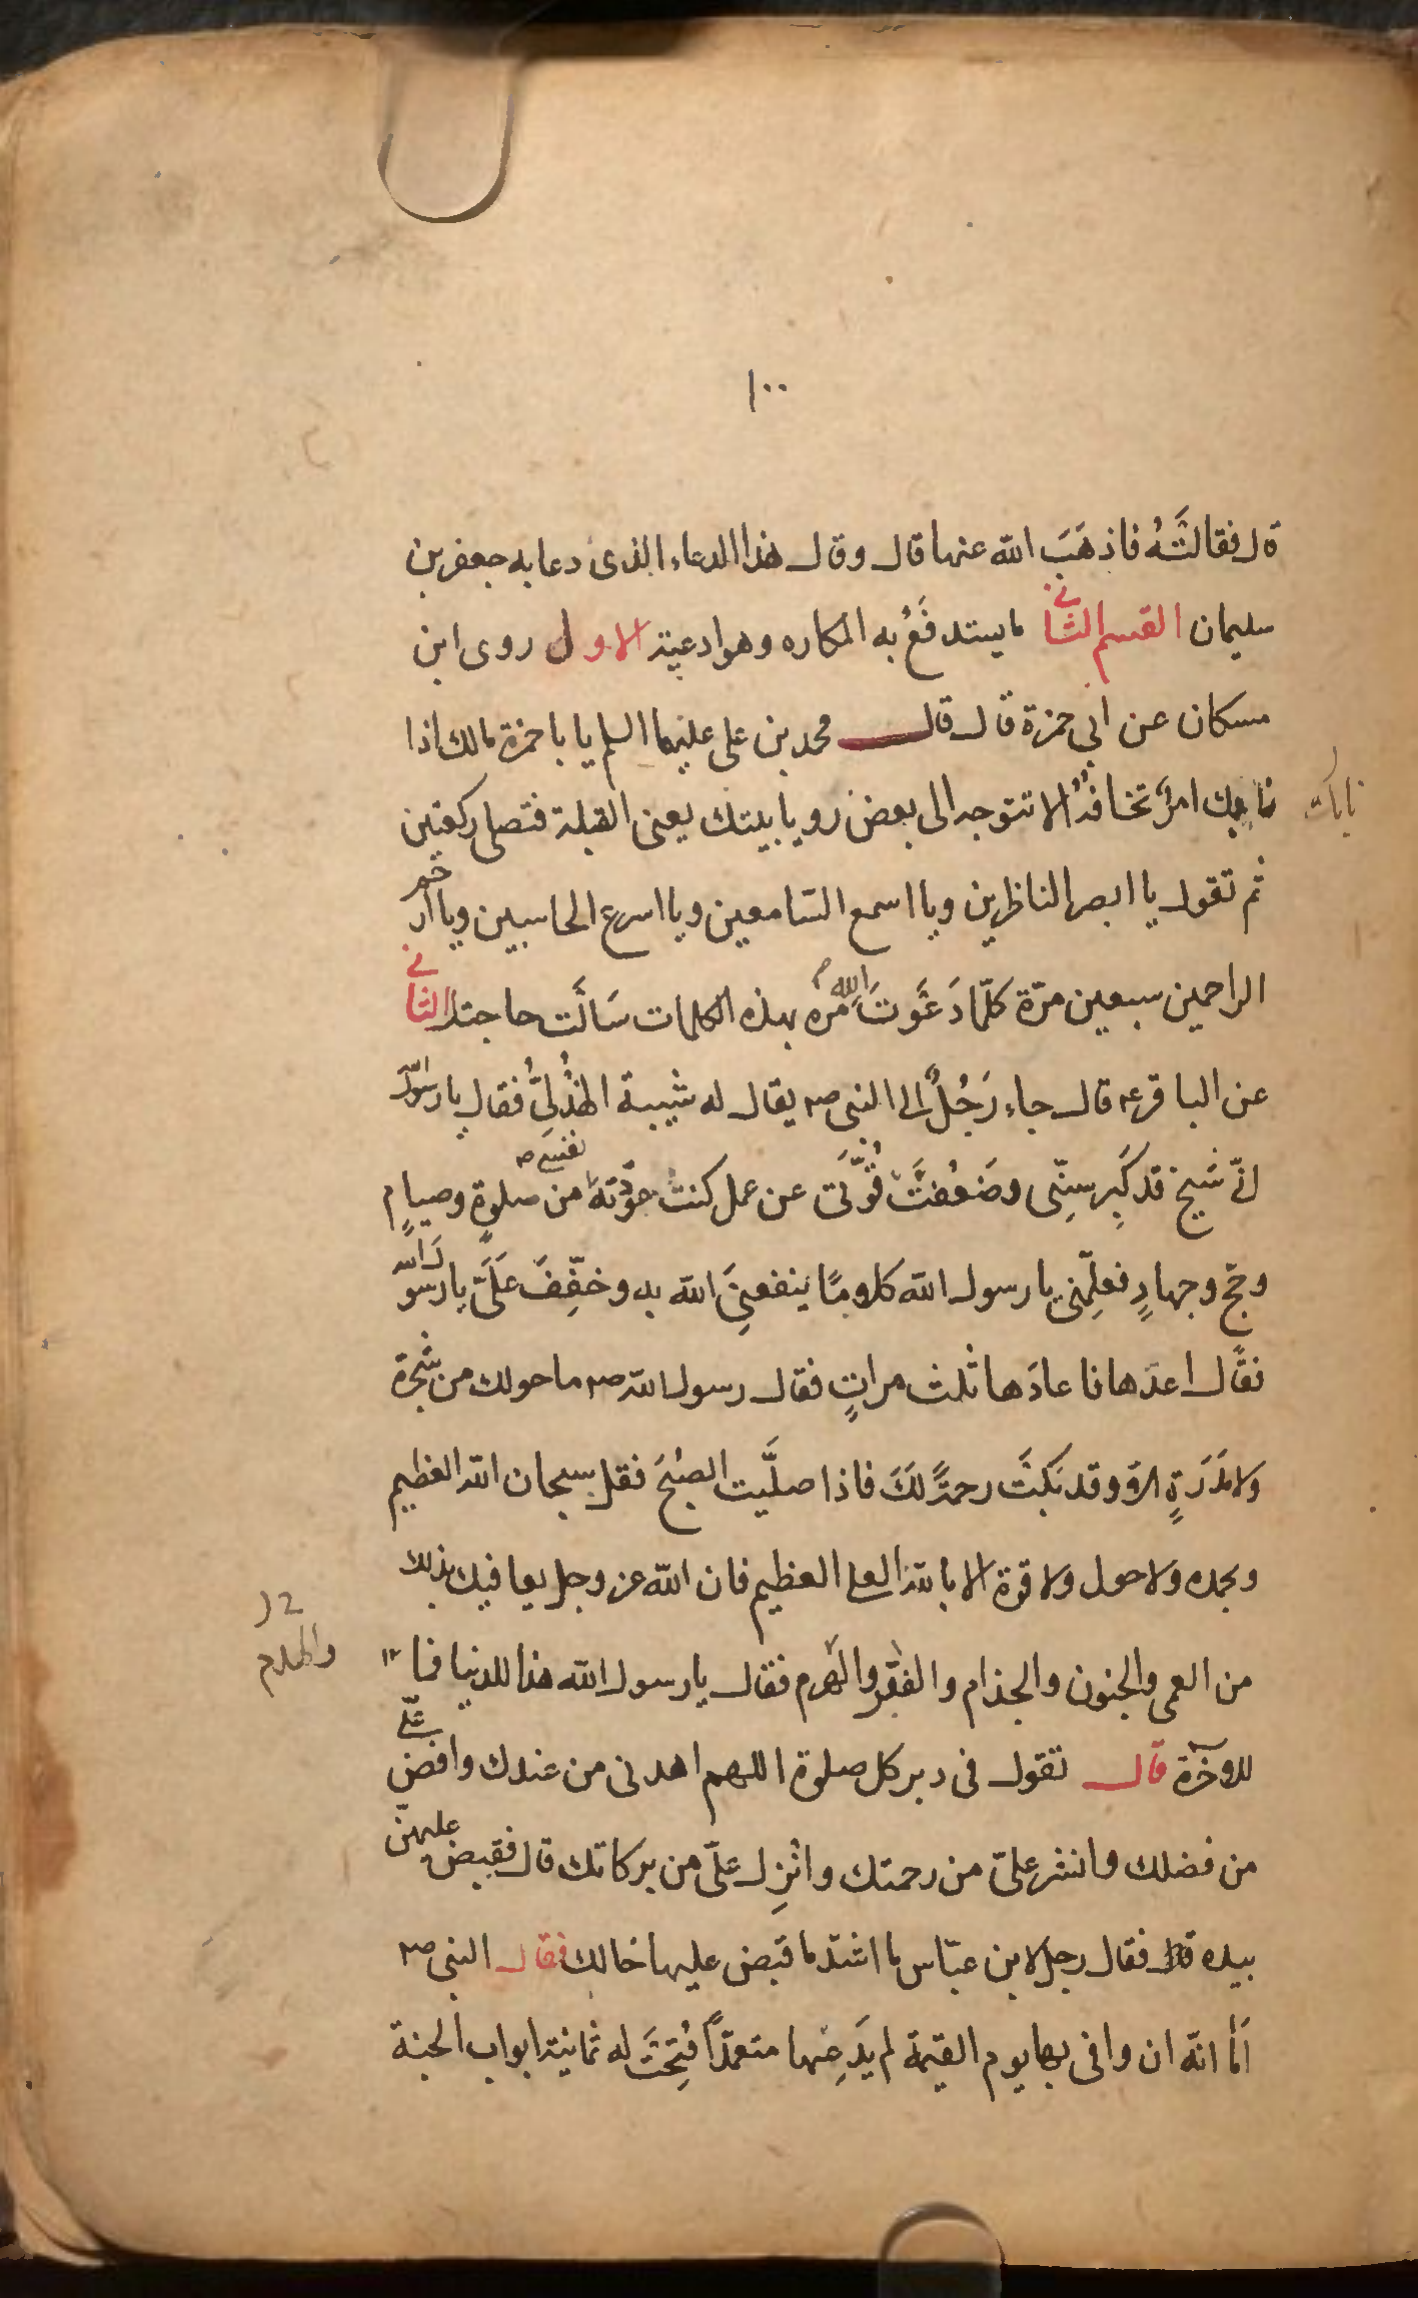 ١٠٠
قال فقالته فاذهَبَ الله عنها قال وقال هذا الدعاء الذى دعا به جعفر بن
سليمان القسم الثانى ما يستدفَعُ به المكاره وهو ادعية الاول روى ابن
مسكان عن ابى حمزة قال قال محمد بن على عليهما السلم يا با حمزة مالك اذا
نابك امرٌ تخافهُ الا تتوجه الى بعض زوايا بيتك يعنى القبلة فتصلى ركعتين
نابك
ثم تقول يا ابصر الناظرين ويا اسمع السّامعين ويا اسرع الحاسبين ويا ارحم
الراحمين سبعين مرّة كلّما دَعَوتَ الله مره بهذه الكلمات سَالَت حاجتك الثانى
عن الباقر ع قال جاء رَجُلٌ الى النبى ص يقال له شيبة الهُذُلِىُّ فقال يا رسول الله
انّى شيخ قد كَبِر سِنِّى وضَعُفَتْ قُوَّتى عن عمل كنتُ عوّدتهُ نفسى من صلوةٍ وصيامٍ
وحجٍ وجهادٍ فعلِّمنى يا رسول الله كلامًا ينفعنِىَ الله به وخفِّفْ علَىَّ يا رسول الله
فقال اعدها فاعادَها ثلث مراتٍ فقال رسول الله ص ما حولك من شجرة
ولا مَدَرَةٍ الا وقد بَكَتْ رحمةً لَكَ فاذا صلَّيت الصُبْحَ فقل سبحان الله العظيم
وبحمده ولا حول ولا قوة الا بالله العلى العظيم فان الله عز وجل يعافيك بذلك
من العمى والجنون والجذام والفقر والهَرم فقال يا رسول الله هذا للدنيا فما
والهدم
للاخرة قال تقول فى دبر كل صلوة اللهم اهدنى من عندك وافض علىّ
من فضلك وانشر علىّ من رحمتك وانْزِل علىّ من بركاتك قال فقبض عليهنّ
بيده فقال رجل لابن عبّاس ما اشدّ ما قبض عليها خالك فقال النبى ص
اَما انّه ان وافى بها يوم القيمة لم يَدَعْها متعمّداً فُتِحَتْ له ثمانية ابواب الجنة